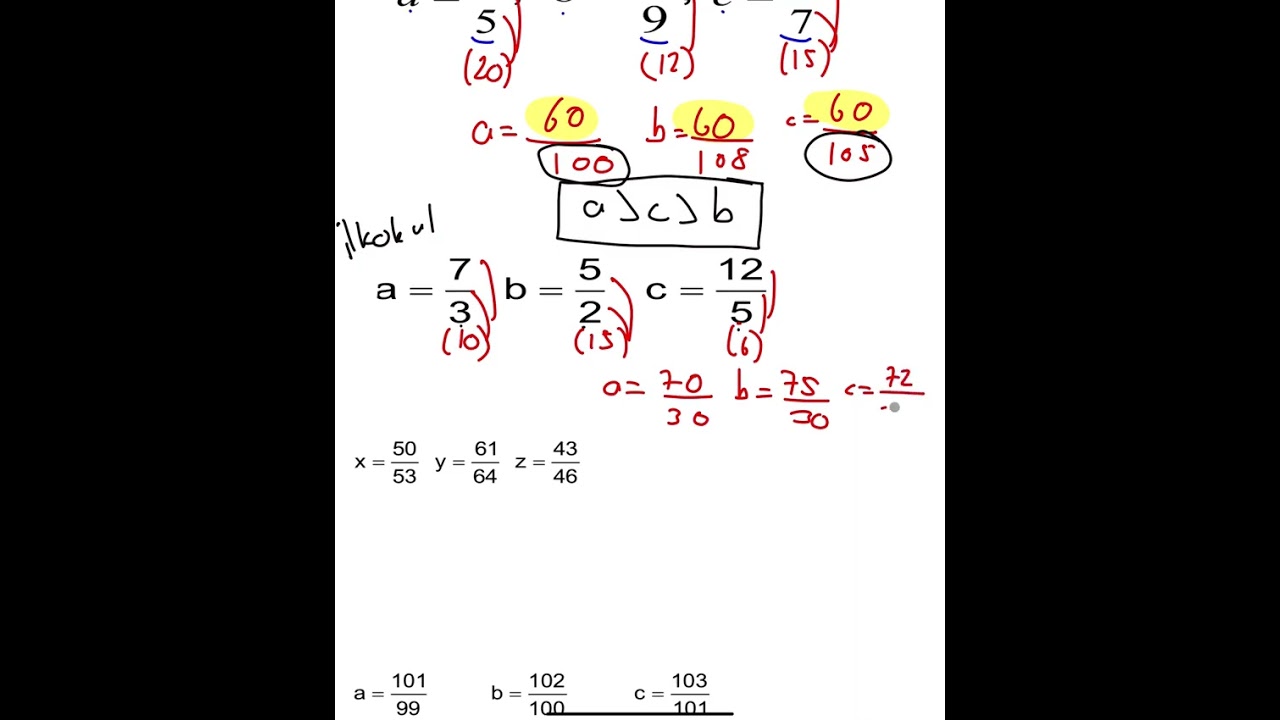 a = c =
5 9 7
(20) (12) (15)
a = 60/100 b = 60/108 c = 60/105
a > c > b
ilkokul
a = 7/3 b = 5/2 c = 12/5
(10) (15) (6)
a = 70/30 b = 75/30 c = 72/
x = 50/53 y = 61/64 z = 43/46
a = 101/99 b = 102/100 c = 103/101